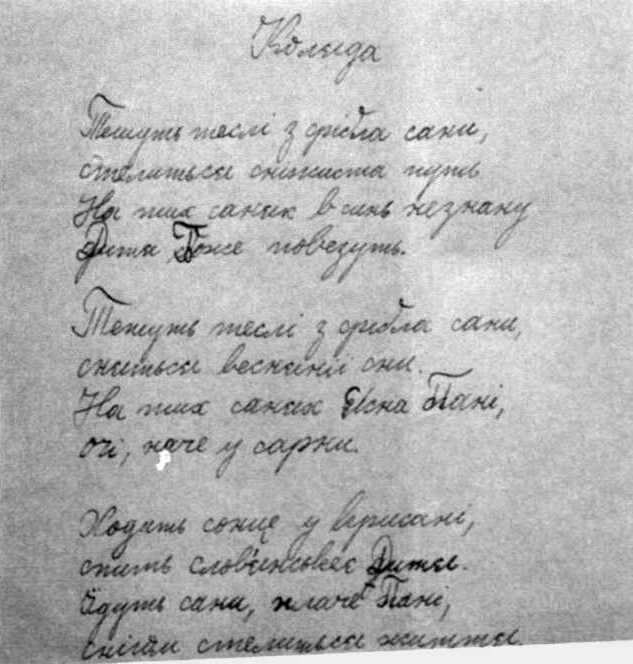 Коляда
Тешуть теслі з срібла сани,
стелиться сніжиста путь
На тих санях в синь незнану
Дитя Боже повезуть.
Тешуть теслі з срібла сани,
сняться веснянії сни.
На тих санях Ясна Пані,
очі, наче у сарни.
Ходить сонце у крисані,
спить слов'янськеє Дитя.
Їдуть сани, плаче Пані,
снігом стелиться життя.